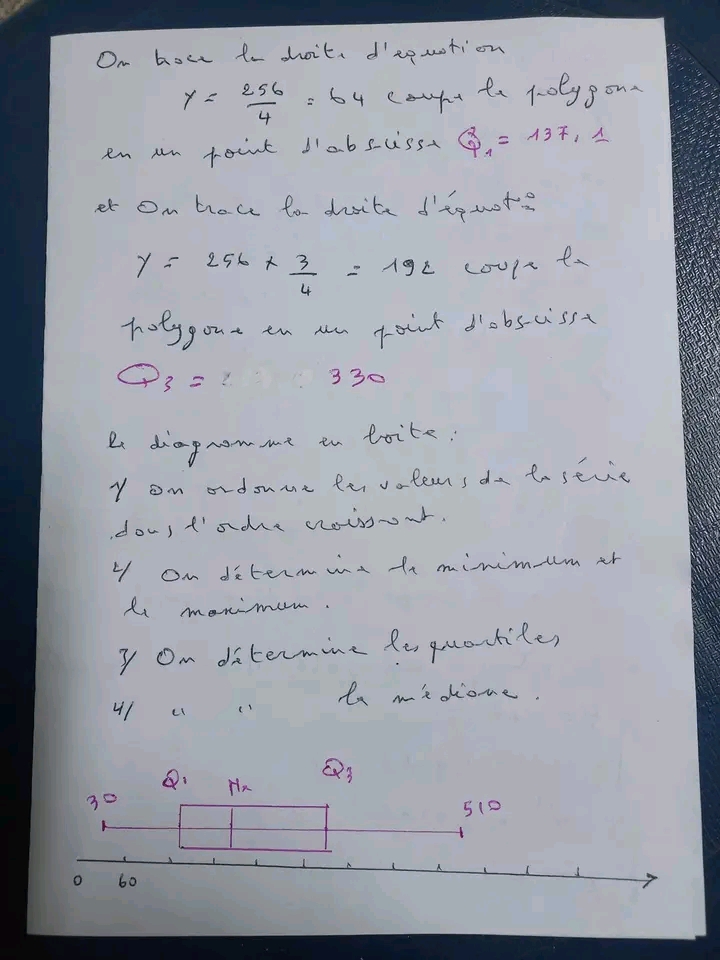 On trace la droite d'équation
Y = 256/4 = 64 coupe le polygone
en un point d'abscisse Q1 = 137,1
et On trace la droite d'équat°
Y = 256 × 3/4 = 192 coupe le
polygone en un point d'abscisse
Q3 = 330
le diagramme en boite :
1/ On ordonne les valeurs de la série
dans l'ordre croissant.
2/ On détermine le minimum et
le maximum.
3/ On détermine les quartiles
4/ " " la médiane.
Q1 Me Q3
30 510
0 60